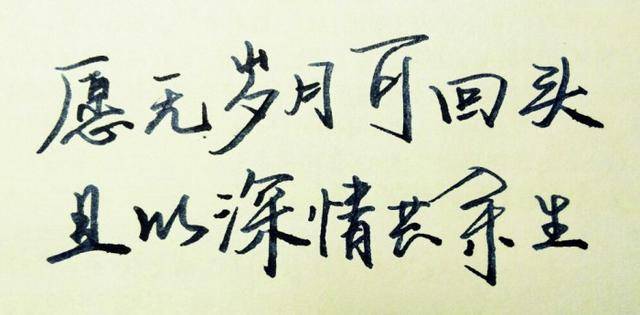 愿无岁月可回头
且以深情共余生